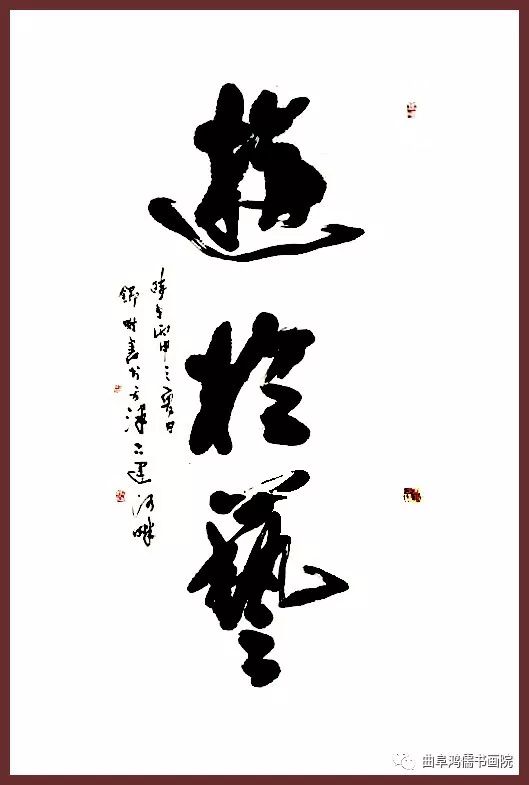 遊於藝
時在丙申之夏日
錦財書於天津古運河畔
曲阜鸿儒书画院